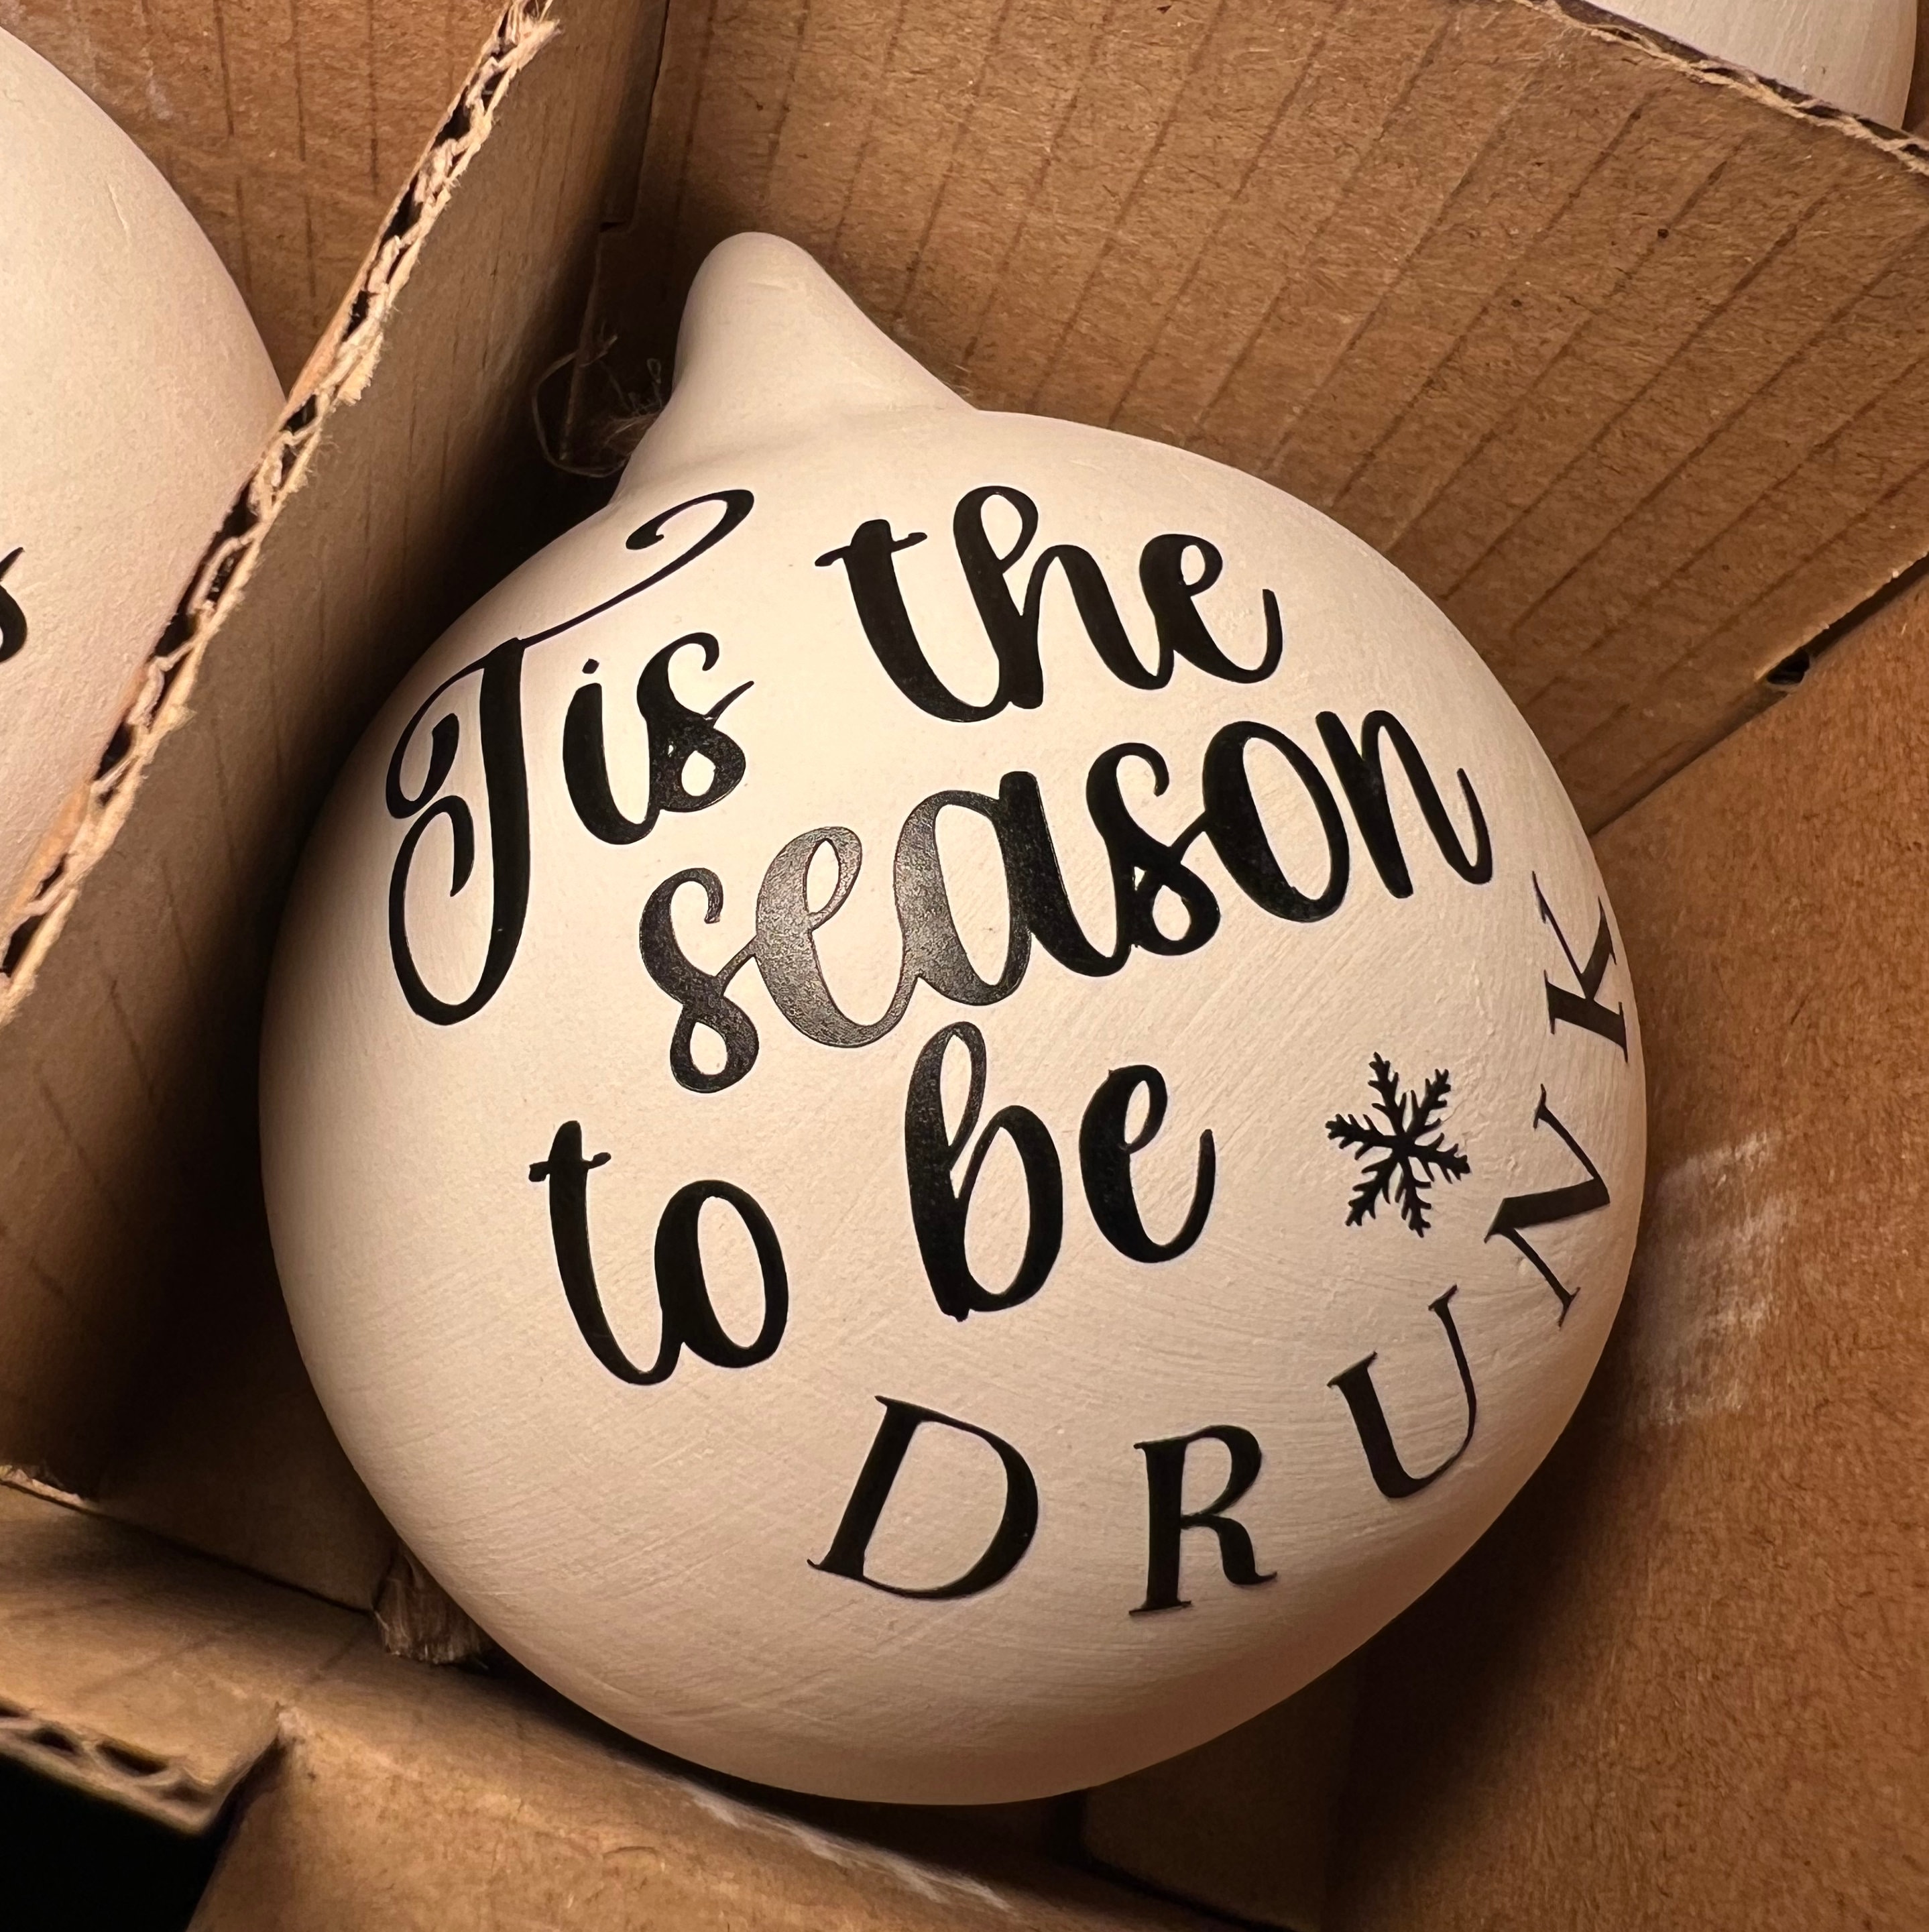 Tis the
season
to be
DRUNK